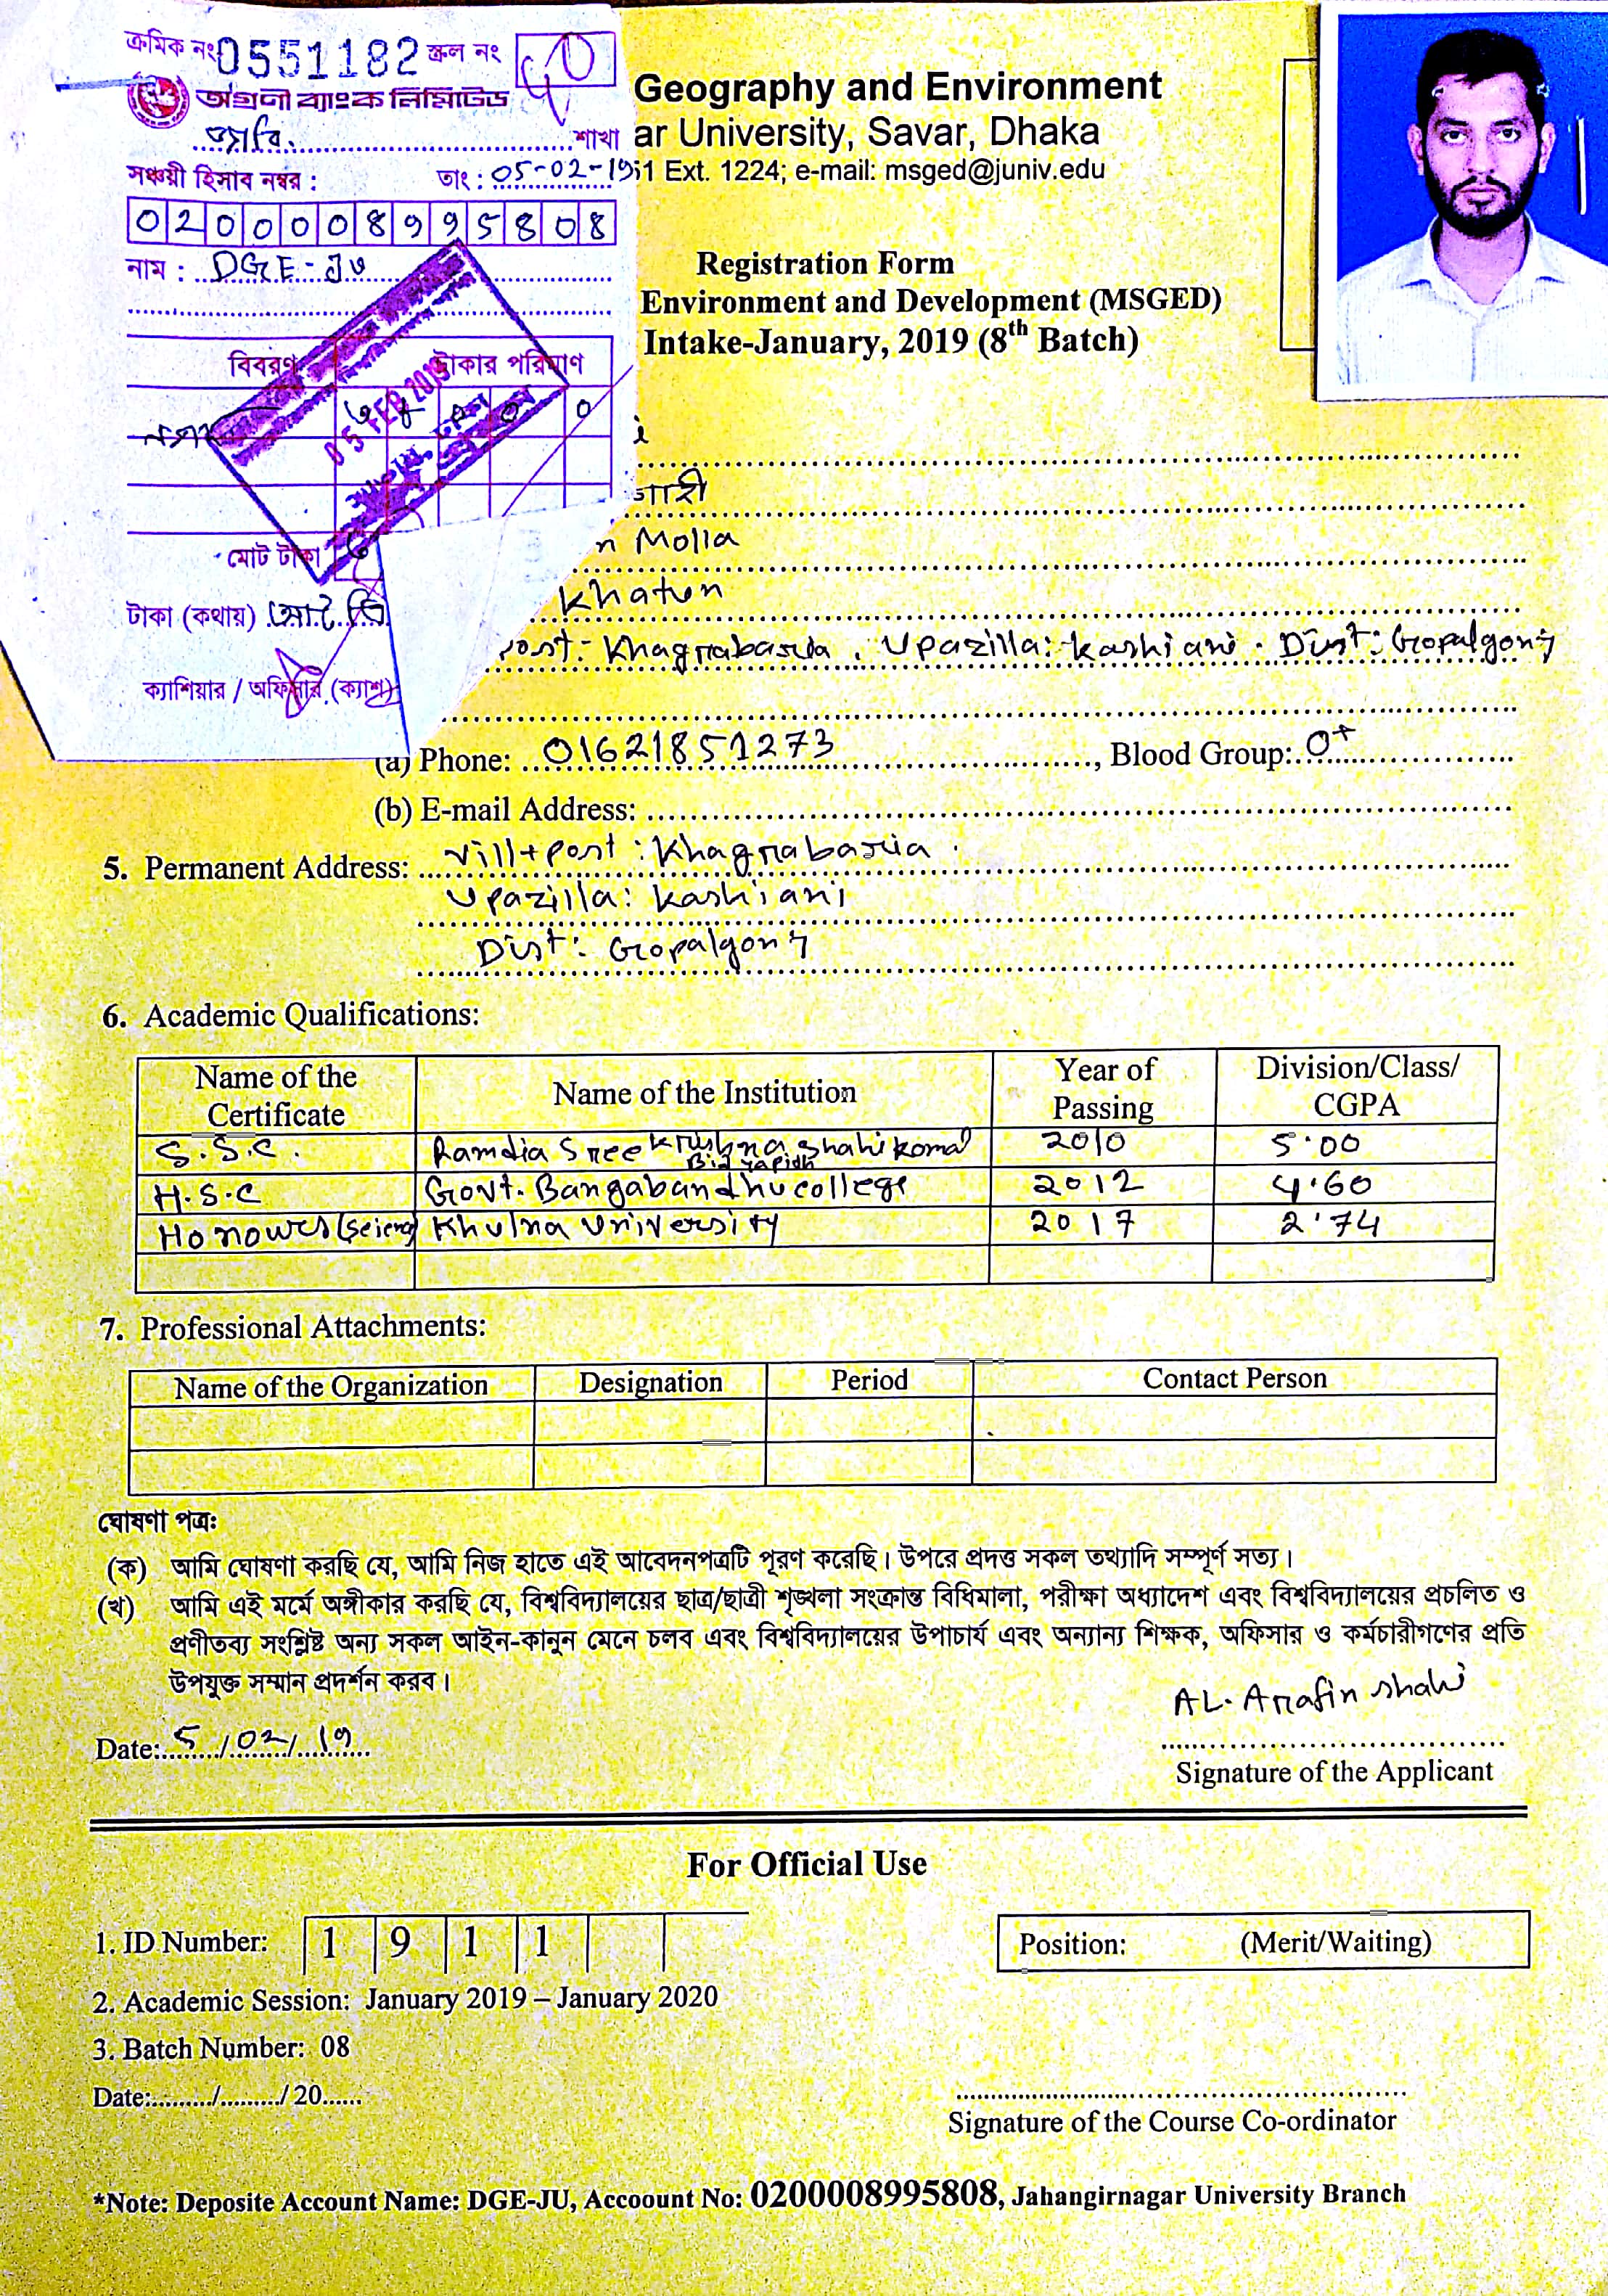 ক্রমিক নং 0551182 স্ক্রল নং
অগ্রণী ব্যাংক লিমিটেড
শাখা
সঞ্চয়ী হিসাব নম্বর : তাং : 05-02-19
0200008995808
নাম : DGE-JU
বিবরণ টাকার পরিমাণ
05 FEB 2019
মোট টাকা
টাকা (কথায়)
ক্যাশিয়ার / অফিসার (ক্যাশ)
Geography and Environment
ar University, Savar, Dhaka
51 Ext. 1224; e-mail: msged@juniv.edu
Registration Form
Environment and Development (MSGED)
Intake-January, 2019 (8th Batch)
i
শাহী
n Molla
Khatun
Post: Khagrabaria, Upazilla: Kashiani. Dist: Gopalgonj
(a) Phone: 01621851273, Blood Group: O+
(b) E-mail Address:
5. Permanent Address: Vill+Post: Khagrabaria.
Upazilla: Kashiani
Dist: Gopalgonj
6. Academic Qualifications:
Name of the Certificate Name of the Institution Year of Passing Division/Class/ CGPA
S.S.C. Ramdia Sree Krishna Shahi Komal Bidyapidh 2010 5.00
H.S.C Govt. Bangabandhu college 2012 4.60
Honowrs (Scienc) Khulna University 2017 2.74
7. Professional Attachments:
Name of the Organization Designation Period Contact Person
ঘোষণা পত্রঃ
(ক) আমি ঘোষণা করছি যে, আমি নিজ হাতে এই আবেদনপত্রটি পূরণ করেছি। উপরে প্রদত্ত সকল তথ্যাদি সম্পূর্ণ সত্য।
(খ) আমি এই মর্মে অঙ্গীকার করছি যে, বিশ্ববিদ্যালয়ের ছাত্র/ছাত্রী শৃঙ্খলা সংক্রান্ত বিধিমালা, পরীক্ষা অধ্যাদেশ এবং বিশ্ববিদ্যালয়ের প্রচলিত ও
প্রণীতব্য সংশ্লিষ্ট অন্য সকল আইন-কানুন মেনে চলব এবং বিশ্ববিদ্যালয়ের উপাচার্য এবং অন্যান্য শিক্ষক, অফিসার ও কর্মচারীগণের প্রতি
উপযুক্ত সম্মান প্রদর্শন করব।
AL. Arafin Shahi
Date: 5/02/19
Signature of the Applicant
For Official Use
1. ID Number: 1 9 1 1
Position: (Merit/Waiting)
2. Academic Session: January 2019 – January 2020
3. Batch Number: 08
Date:........./........./ 20......
Signature of the Course Co-ordinator
*Note: Deposite Account Name: DGE-JU, Accoount No: 0200008995808, Jahangirnagar University Branch